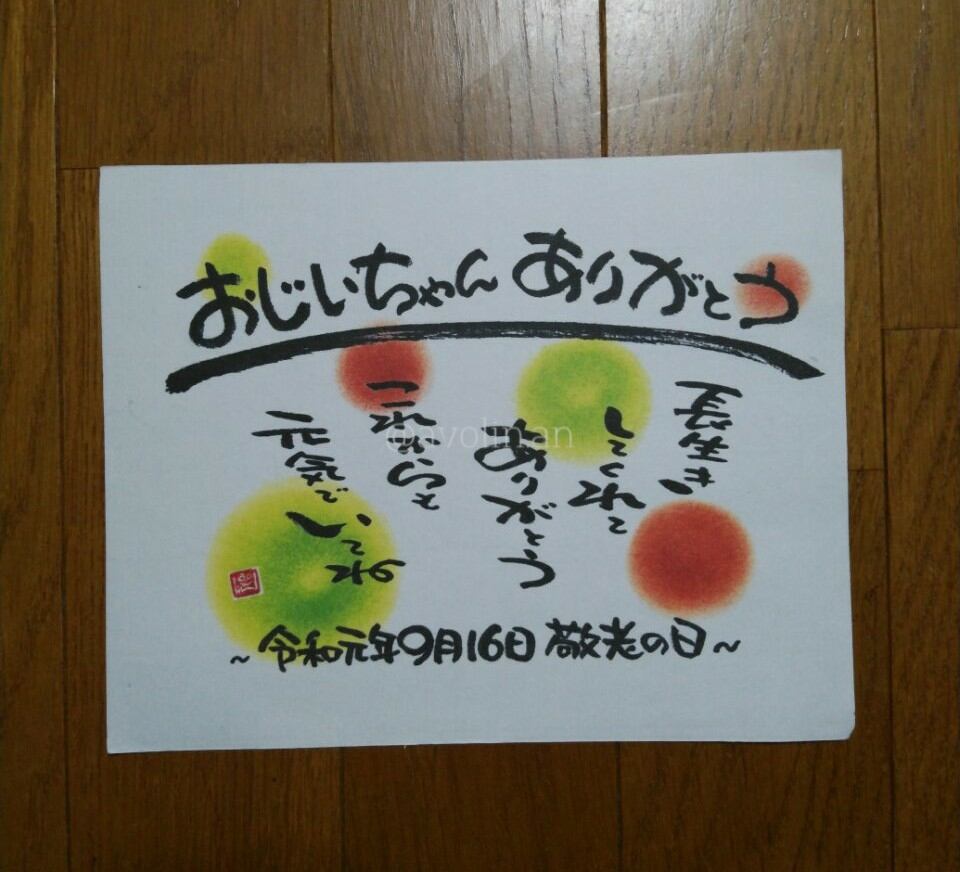 おじいちゃん ありがとう
長生き
してくれて
ありがとう
これからも
元気で
いてね
~令和元年9月16日 敬老の日~